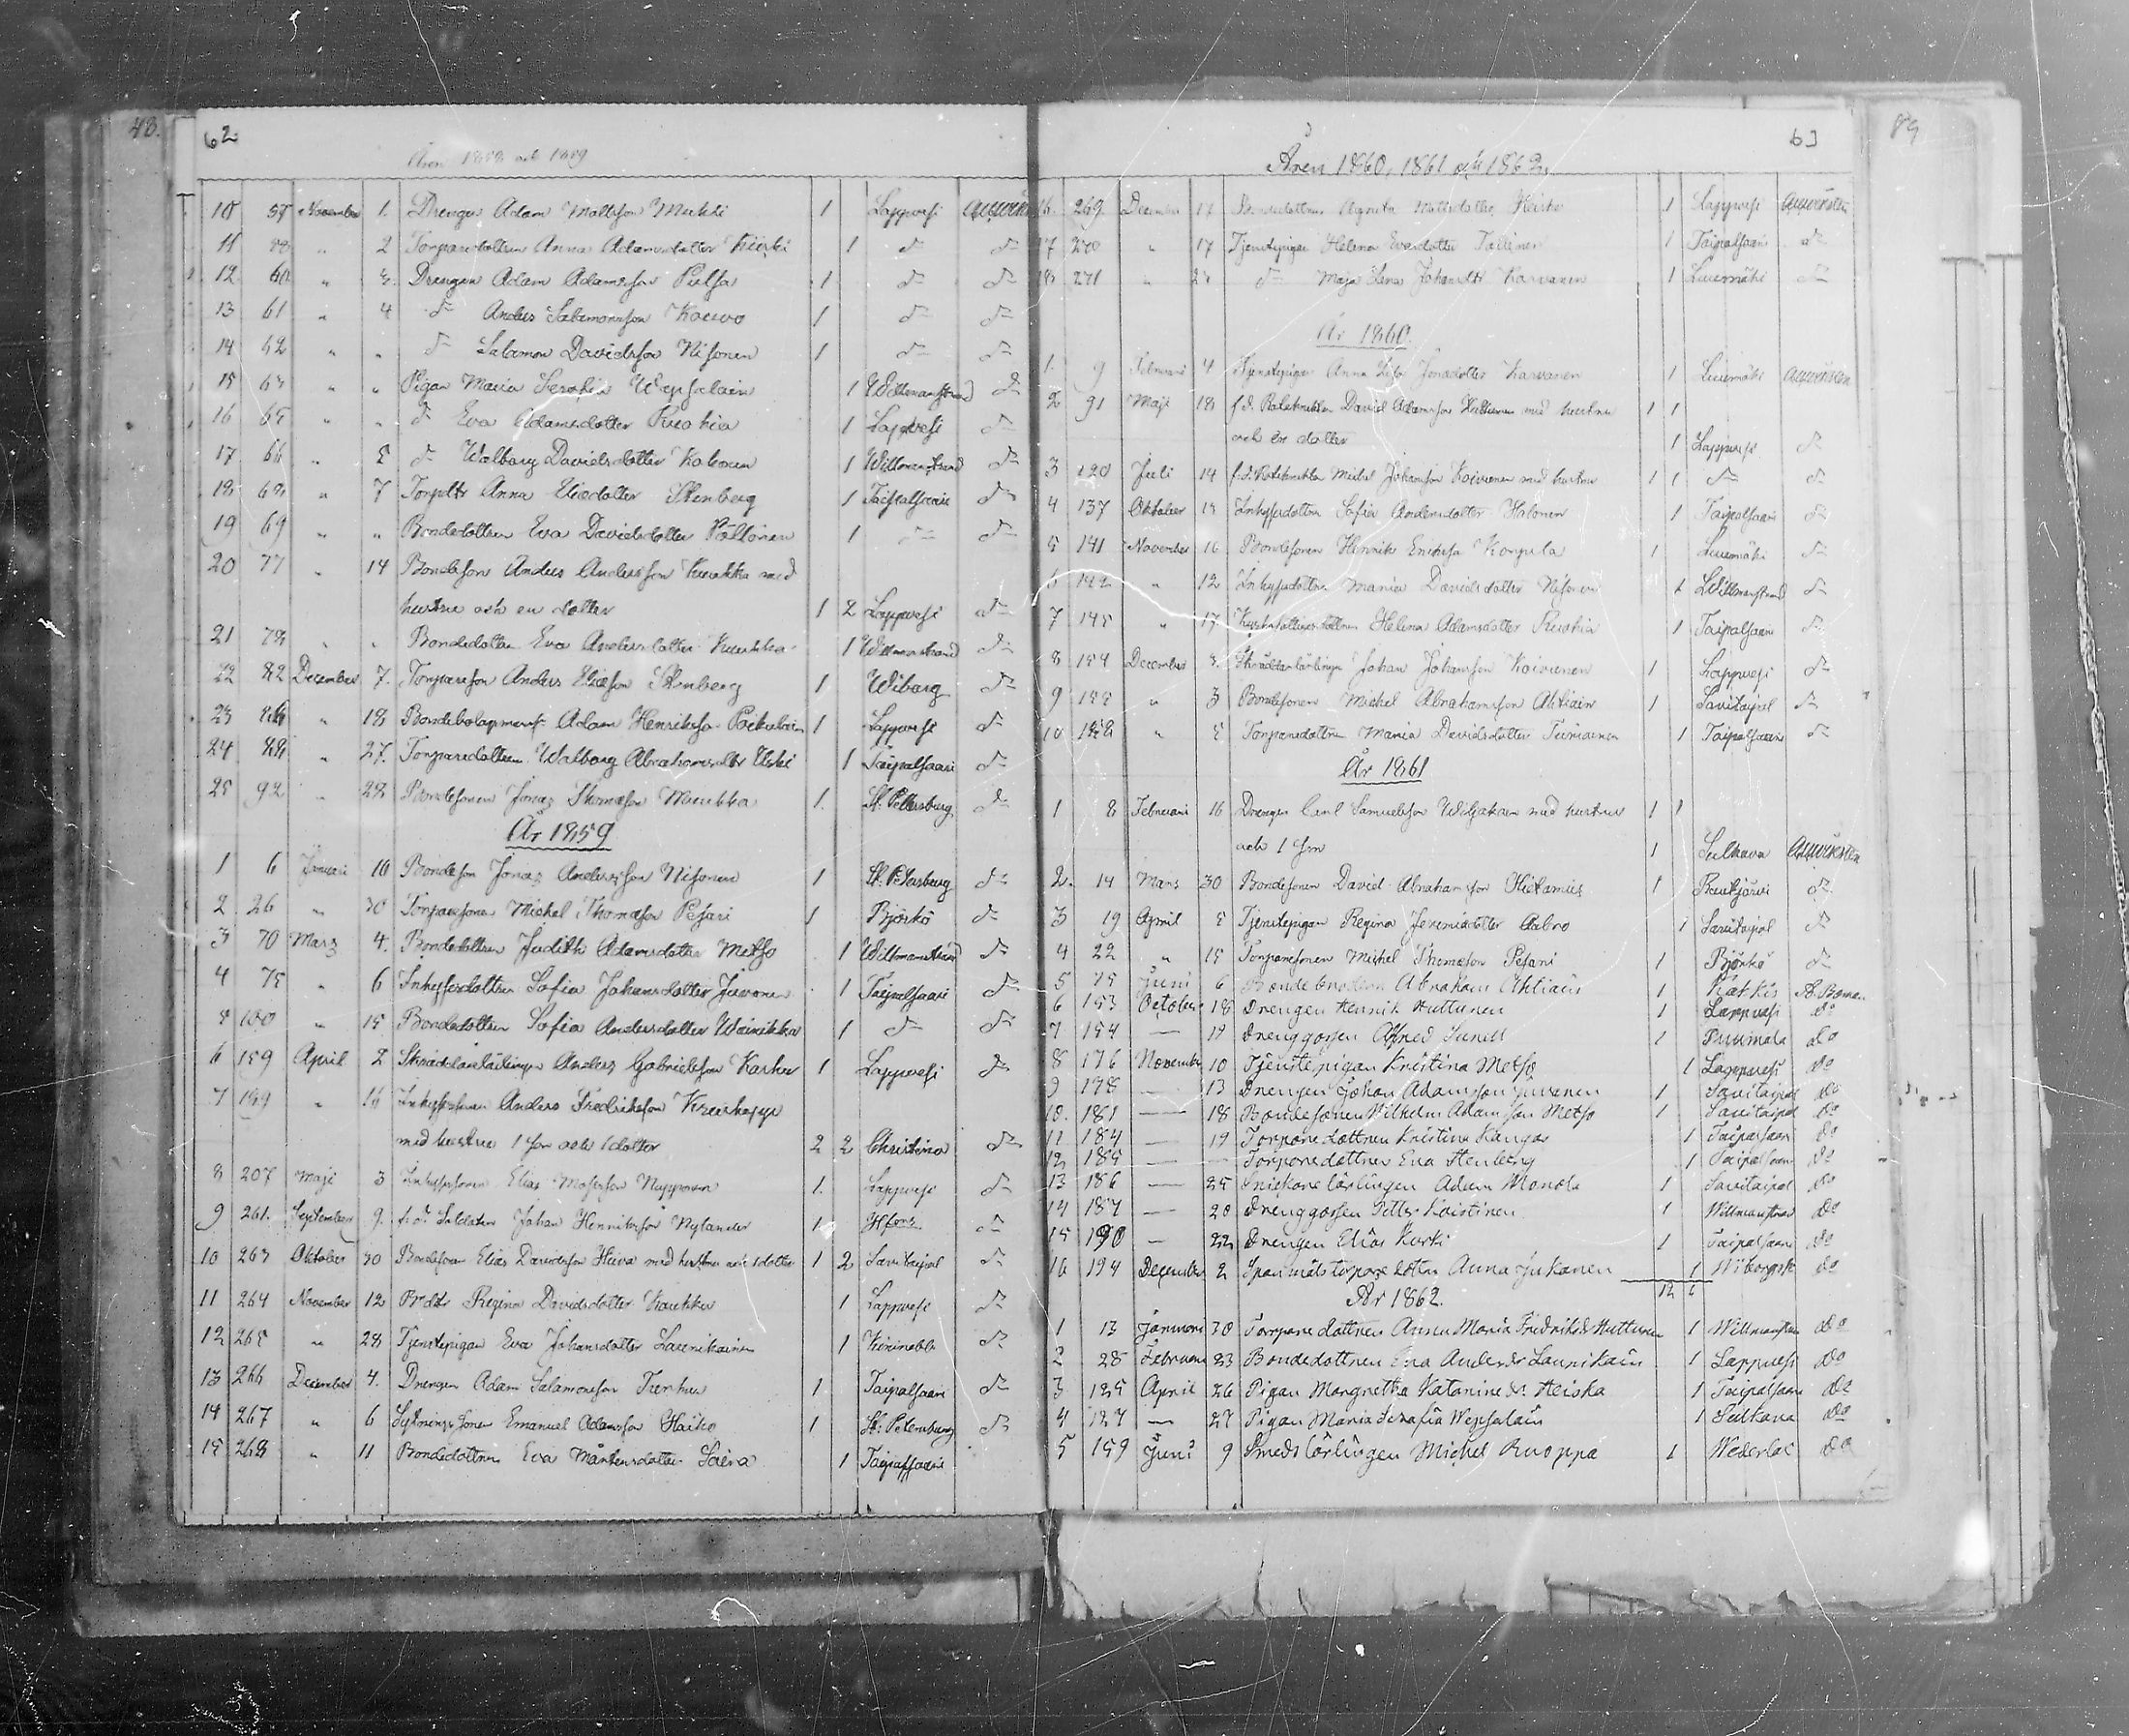 48.
62
Åren 1858 och 1859
10 57 November 1. Drengen Adam Mattsson 1 Lappvesi
11 " 2 Torparedottren Anna Adamsdotter Kurki 1 do do
12 60 " 3. Drengen Adam Adamsson Pulsa 1 do do
13 61 " 4 do Anders Salamonsson Kouvo 1 do do
14 62 " " do Salamon Davidsson Nisonen 1 do do
15 63 " " Pigan Maria Serafia Wepsalain 1 Willmanstrand do
16 65 " " do Eva Adamsdotter Ruohia 1 Lappvesi do
17 66 " 5 do Walborg Davidsdotter 1 Willmanstrand do
18 68 " 7 Torpdtr Anna Eliedotter Stenberg 1 Taipalsaari do
19 69 " " Bondedottren Eva Davidsdotter Pöllönen 1 do do
20 77 " 14 Bondeson Anders Andersson Kuukka med
hustru och en dotter 1 2 Lappvesi do
21 78 " " Bondedotten Eva Andersdotter Kuukka 1 Willmanstrand do
22 82 December 7. Torpareson Anders Eliesson Stenberg 1 Wiborg do
23 " 18 Adam Henriksson 1 Lappvesi do
24 88 " 27. Torparedottren Walborg Abrahamsdtr Uski 1 Taipalsaari do
25 92 " 28 Bondesonen Jonas Thomasson Muukka 1. St. Petersburg do
År 1859
1 6 Januari 10 Bondeson Jonas Andersson Nisonen 1 St. Petersburg do
2 26 " 30 Torparesonen Michel Thomasson Pesari 1 Björkö do
3 70 Mars 4. Bondedottren Judith Adamsdotter Metso 1 Willmanstrand do
4 75 " 6 Inhysesdottren Sofia Johansdotter Juvonen 1 Taipalsaari do
5 100 " 15 Bondedottren Sofia Andersdotter Wainikka 1 do do
6 159 April 2 Skräddarlärlingen Anders Gabrielsson Karhu 1 Lappvesi do
7 189 " 16 Anders Fredriksson
med hustru 1 son och 1 dotter 2 2 Christina do
8 207 Maji 3 Inhysessonen Elias Mosesson Nupponen 1. Lappvesi do
9 261. September 9. f.d. Soldaten Johan Henriksson Nylander 1 Hfors do
10 263 Oktober 30 Bondeson Elias Davidsson med hustru och 1 dotter 1 2 Savitaipal do
11 264 November 12 Regina Davidsdotter Kaukka 1 Lappvesi do
12 265 " 28 Tjenstepigan Eva Johansdotter Launikainen 1 Kivinebb do
13 266 December 4. Drengen Adam Salamonsson Turkia 1 Taipalsaari do
14 267 " 6 Emanuel Adamsson Haiko 1 St. Petersburg do
15 268 " 11 Bondedottren Eva Mårtensdotter 1 Taipalsaari
63
89
Åren 1860, 1861 och 1862.
16. 269 December 17 Agneta Mattsdotter Heisko 1 Lappvesi
17 270 " 17 Tjenstepigan Helena Evadotter 1 Taipalsaari do
18 271 " do Maja Lena Johansdtr Karvanen 1 Luumäki do
År 1860.
1. 9 Februari 4 Tjenstepigan Anna Jonasdotter Karvanen 1 Luumäki
2 91 Maji 18 f.d. David Adamsson Huttunen med hustru 1 1
och en dotter 1 Lappvesi do
3 120 Juli 14 f.d. Michel Johansson Koivunen med hustru 1 1 do do
4 137 Oktober Inhysedottren Sofia Andersdotter Halonen 1 Taipalsaari do
5 141 November 16 Bondesonen Henrik Eriksson Konpula 1 Luumäki do
6 142 " 12 Inhysedottren Maria Davidsdotter Nisonen 1 Willmanstrand do
7 145 " 17 Helena Adamsdotter Ruohia 1 Taipalsaari do
8 154 December 3. Skräddarlärlingen Johan Johansson Koivunen 1 Lappvesi do
9 " 3 Bondesonen Michel Abrahamsson Ahtiain 1 Savitaipel do
10 158 " 5 Torparedottren Maria Davidsdotter 1 Taipalsaari do
År 1861
1 8 Februari 16 Drengen Carl Samuelsson Wiljakain med hustru 1 1
och 1 son 1 Sulkava
2. 14 Mars 30 Bondesonen David Abrahamsson Hietamies 1 Ruskjärvi do
3 19 April 5 Tjenstepigan Regina Jeremiadotter Aalro 1 Savitaipal do
4 22 " 15 Torparesonen Michel Thomasson Pesari 1 Björkö do
5 75 Juni 6 Bondebrodern Abraham Ahtiain 1 Räkkis A. Boman
6 153 October 18 Drengen Henrik Huttunen 1 Lappvesi do
7 154 — 19 Drenggossen Alfred Sunell 1 Puumala do
8 176 November 10 Tjenstepigan Kristina Metso 1 Lappvesi do
9 178 — 13 Drengen Johan Adamsson Juvonen 1 Savitaipal do
10. 181 — 18 Bondesonen Wilhelm Adamsson Metso 1 Savitaipal do
11 184 — 19 Torparedottren Kristina Kangas 1 Taipalsaari do
12 185 — — Torparedottren Eva Stenberg 1 Taipalsaari do
13 186 — 25 Snickarelärlingen Adam Monola 1 Savitaipal do
14 187 — 20 Drenggossen Petter Loistinen 1 Willmanstrand do
15 190 — 22 Drengen Elias Kurki 1 Taipalsaari do
16 194 December 2 Anna Jukanen 1 Wiborgsk do
12 6
År 1862.
1 13 Januari 30 Torparedottren Anna Maria Fredriksdr Huttunen 1 Willmanstran do
2 28 Februari 23 Bondedottren Eva Andersdr Launikain 1 Lappvesi do
3 125 April 26 Pigan Margretha Katarinedr Heiska 1 Taipalsaari do
4 127 — 27 Pigan Maria Serafia Wepsalain 1 Sulkava do
5 159 Juni 9 Smedslärlingen Michel Ruoppa 1 Wederlax do